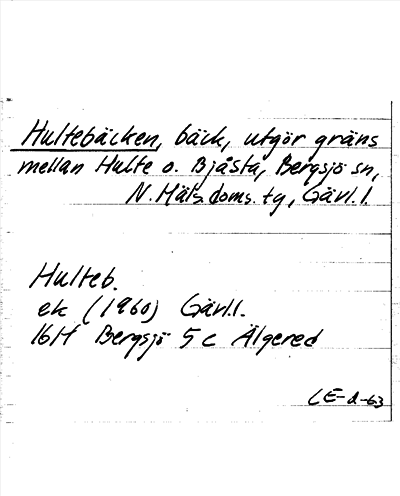 Hultebäcken, bäck, utgör gräns
mellan Hulte o. Bjåsta, Bergsjö sn,
N. Häls. doms. tg, Gävl. l.
Hulteb.
ek (1960) Gävl.l.
16H Bergsjö 5 c Älgered
LE-d-63